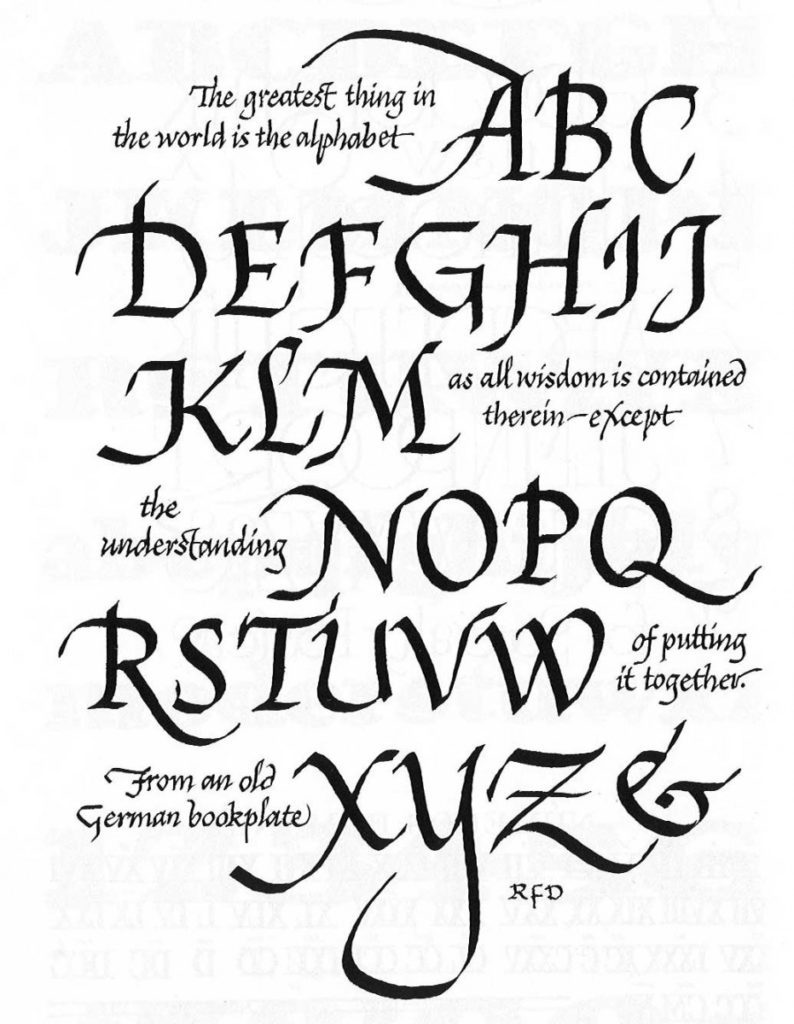 The greatest thing in
the world is the alphabet
ABC
DEFGHIJ
KLM
as all wisdom is contained
therein–except
the
understanding
NOPQ
RSTUVW
of putting
it together.
From an old
German bookplate
XYZ&
RFD